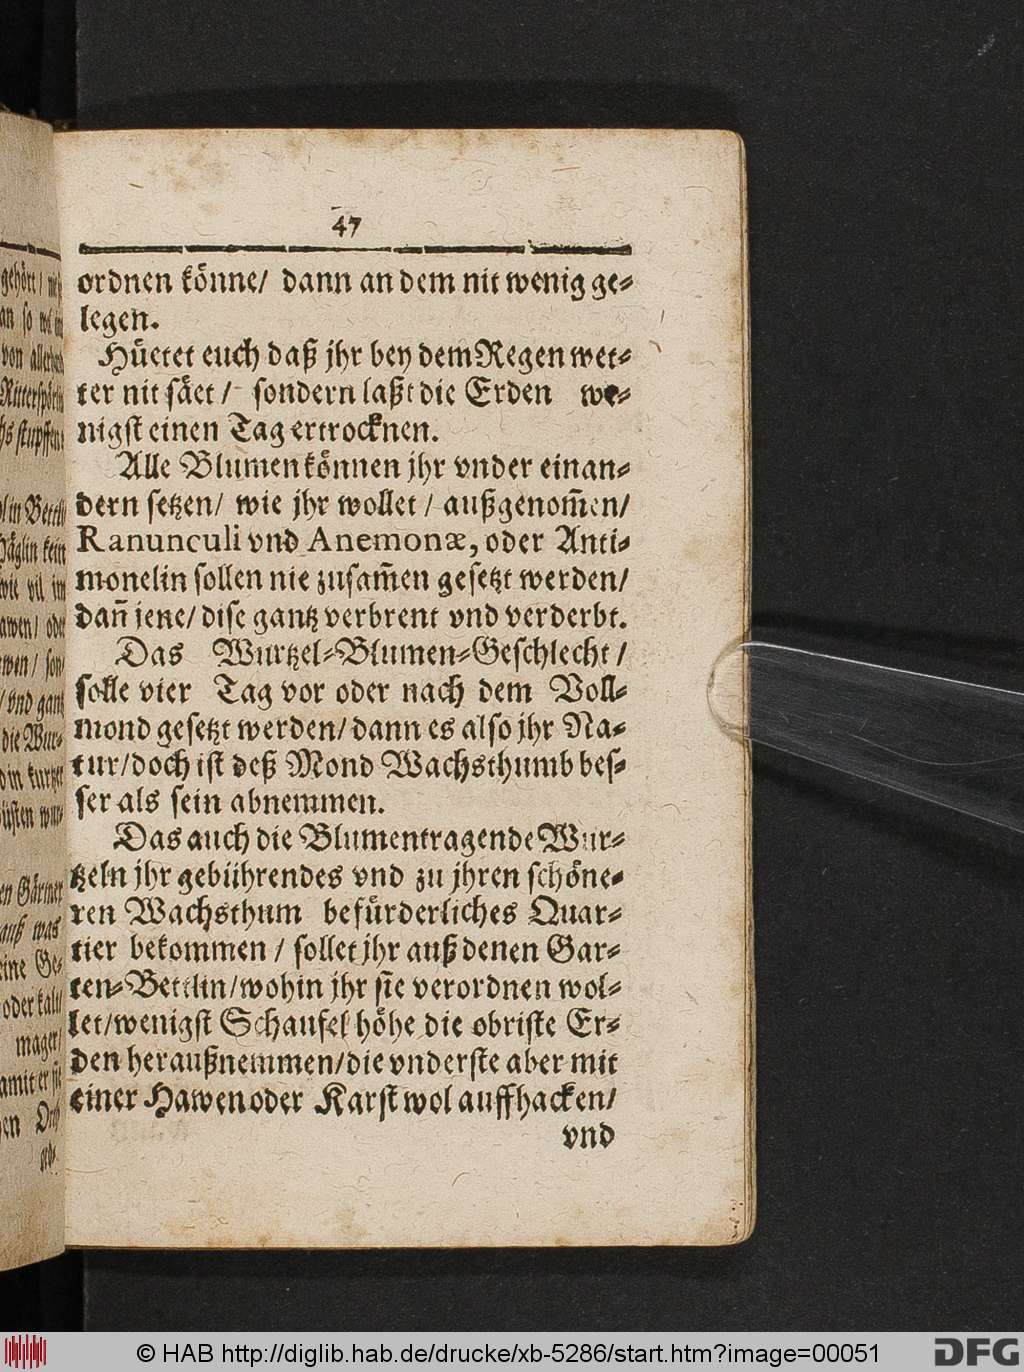 47
ordnen könne/ dann an dem nit wenig ge-
legen.
Hüetet euch daß jhr bey dem Regen wet-
ter nit säet / sondern laßt die Erden we-
nigst einen Tag ertrocknen.
Alle Blumen können jhr vnder einan-
dern setzen/ wie jhr wollet / außgenom̃en/
Ranunculi vnd Anemonæ, oder Anti-
monelin sollen nie zusam̃en gesetzt werden/
dañ jene/ dise gantz verbrent vnd verderbt.
Das Wurtzel-Blumen-Geschlecht /
solle vier Tag vor oder nach dem Voll-
mond gesetzt werden/ dann es also jhr Na-
tur/doch ist deß Mond Wachsthumb bes-
ser als sein abnemmen.
Das auch die Blumentragende Wur-
tzeln jhr gebührendes vnd zu jhren schöne-
ren Wachsthum befürderliches Quar-
tier bekommen / sollet jhr auß denen Gar-
ten-Bettlin/wohin jhr sie verordnen wol-
let/wenigst Schaufel höhe die obriste Er-
den heraußnemmen/die vnderste aber mit
einer Hawen oder Karst wol auffhacken/
vnd
gehört/
an so
von
Ritterspör
stupffen
in Bettli
Näglin kein
wie vil im
awen/ oder
wen/ son
/vnd gantz
die Wur-
in kurtzer
üsten wur-
en Gärtner
auß was
eine Ge-
oder kalt/
mager/
amit er sie
en Ort
© HAB http://diglib.hab.de/drucke/xb-5286/start.htm?image=00051
DFG